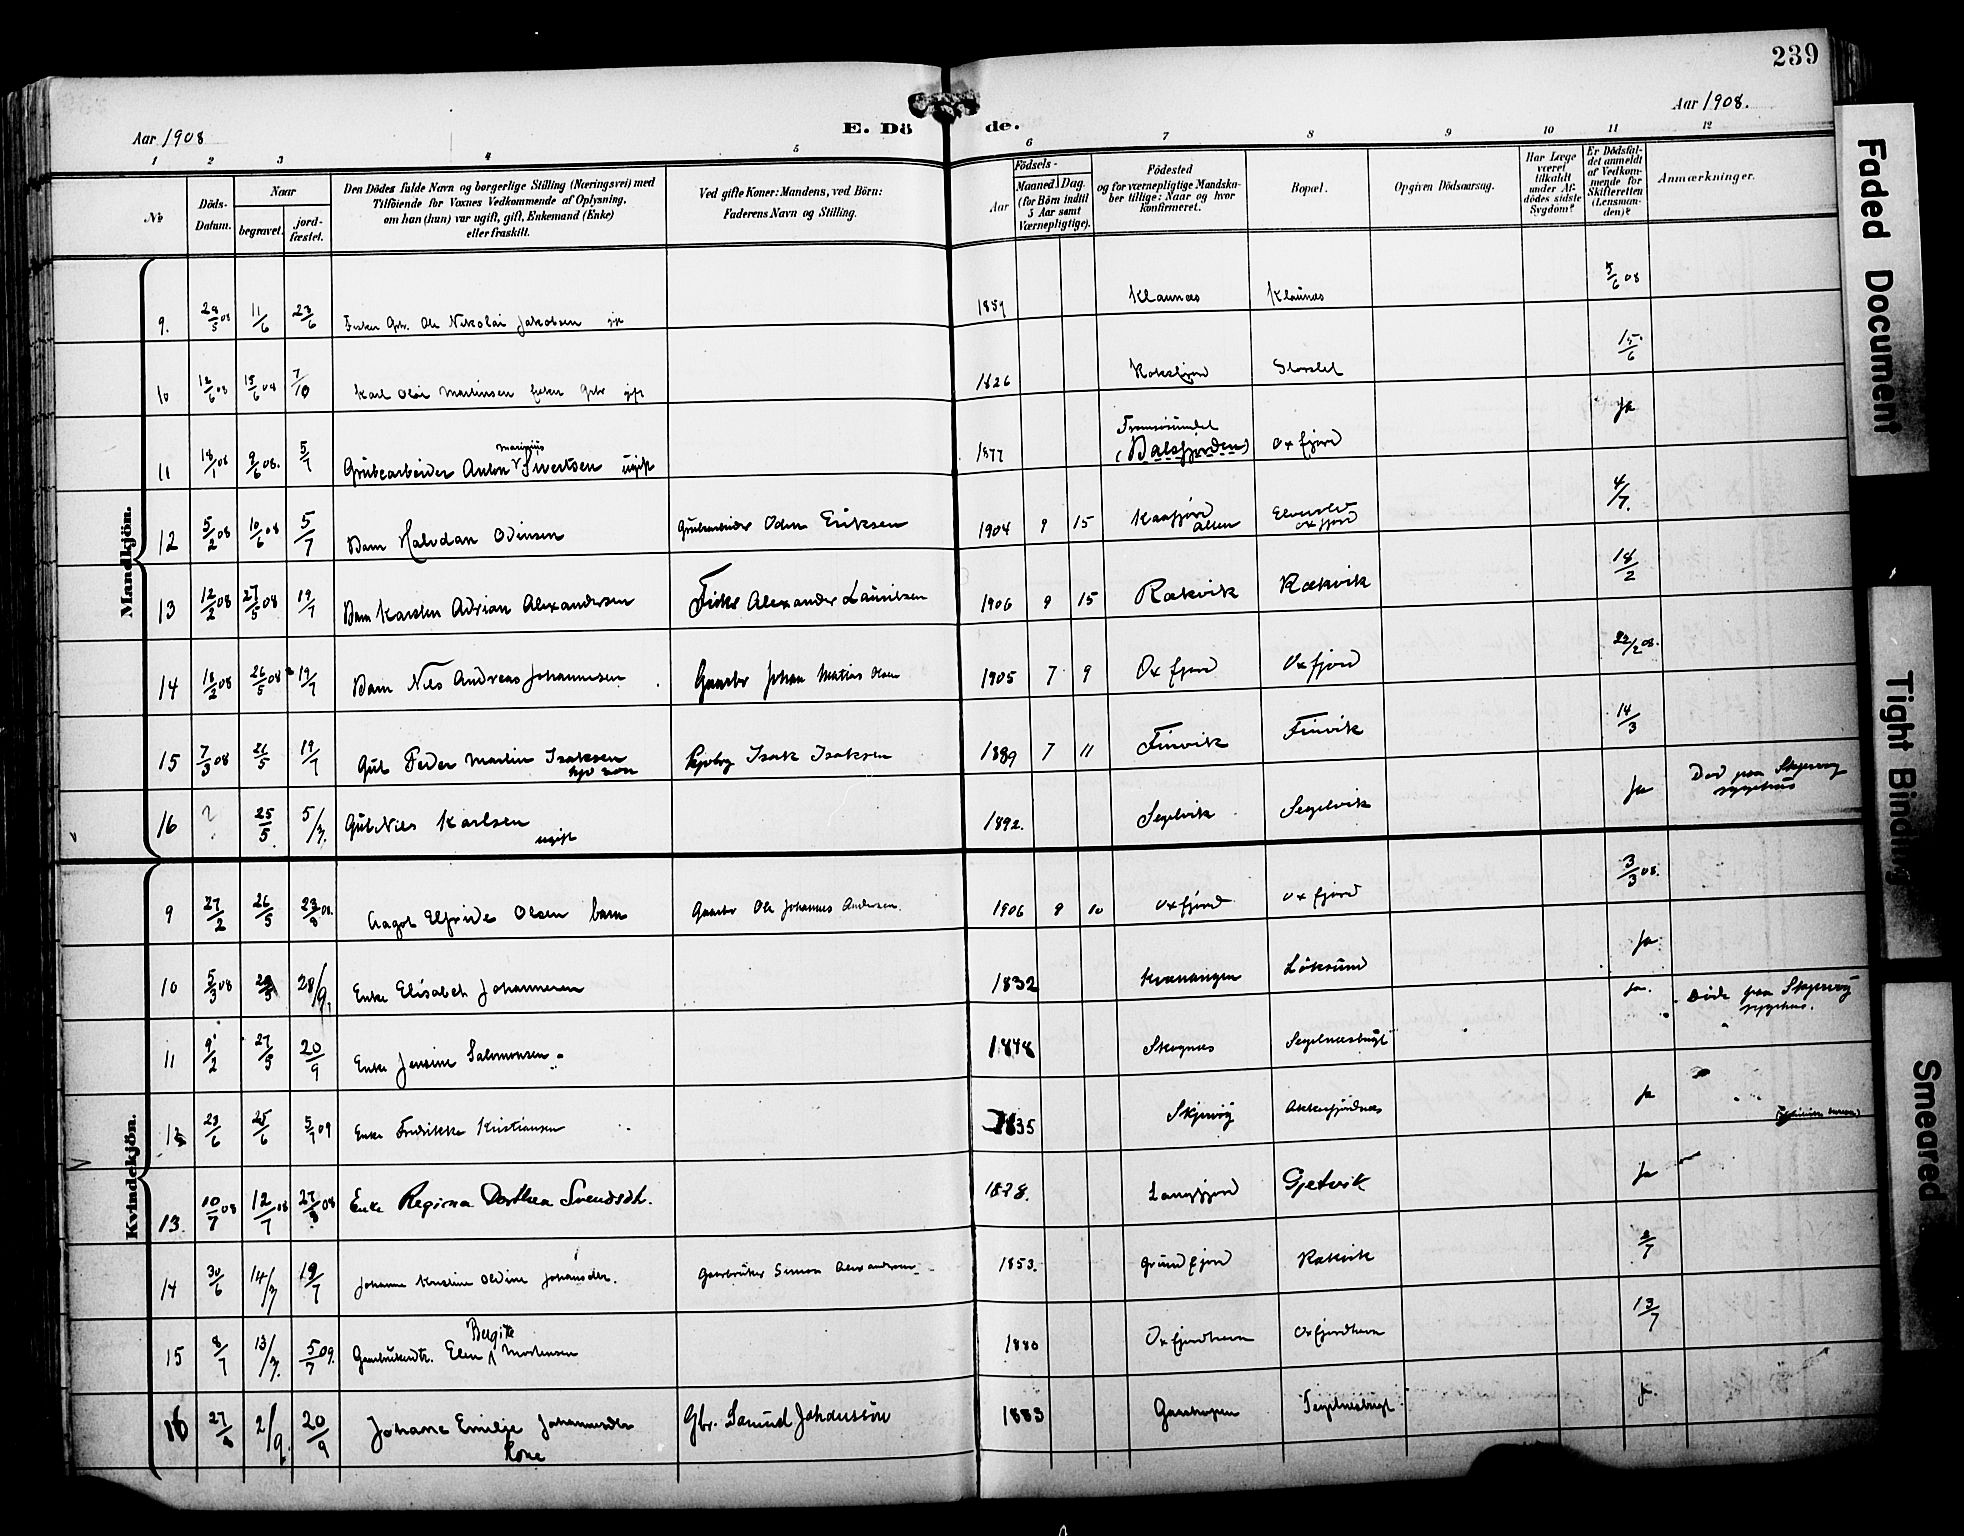 239
Aar 1908
E. Dö de.
Aar 1908.
1 2 3 4 5 6 7 8 9 10 11 12
No
Döds-Datum.
Naar
begravet.
jord-fæstet.
Den Dödes fulde Navn og borgerlige Stilling (Næringsvei) med
Tilföiende for Voxnes Vedkommende af Oplysning,
om han (hun) var ugift, gift, Enkemand (Enke)
eller fraskilt.
Ved gifte Koner: Mandens, ved Börn:
Faderens Navn og Stilling.
Födsels-
Aar
Maaned Dag
(for Börn indtil
5 Aar samt
Værnepligtige).
Födested
og for værnepligtige Mandska-
ber tillige: Naar og hvor
konfirmeret.
Bopæl.
Opgiven Dödsaarsag.
Har Læge
været
tilkaldt
under Af-
dödes sidste
Sygdom?
Er Dödsfal-
det anmeldt
af Vedkom-
mende for
Skifteretten
(Lensman-
den)?
Anmærkninger.
Mandkjön.
9. 28/5 08 11/6 23/6 Ole Nikolai Jakobsen 1859 Klaunes Klaunes 5/6 08
10 12/6 08 15/6 08 7/10 Karl Olai Martinsen gift 1826 Storslet 15/6
11 18/1 08 9/6 08. 5/7 Grubearbeider Anton Marinius Sivertsen ugift 1877 Tromsösundet (Balsfjorden) Oxfjord Ja
12 5/2 08 10/6 08 5/7 Barn Halvdan Odinsen Grubearbeider Odin Eriksen 1904 9 15 Kaafjord Alten Oxfjord 4/7.
13 12/2 08 27/5 08 19/7 Barn Karsten Adrian Alexandersen Fisker Alexander Lauritsen 1906 9 15 Rækvik Rækvik 18/2
14 18/2 08 26/5 08 19/7 Barn Nils Andreas Johannesen Gaarbr Johan Matias Olsen 1905 7 9 Oxfjord Oxfjord 22/2 08.
15 7/3 08 26/5 19/7 Gut Peder Martin Isaksen Isak Isaksen 1889 7 11 Finvik Finvik 14/3
16 ? 25/5. 5/7. Gut Nils Karlsen ugift 1892. Segelvik Segelvik Ja Död paa Skjervøy sygehus
Kvindekjön.
9 27/2 26/5 23/8 08. Aagot Elfride Olsen barn Gaarbr Ole Johannes Andersen. 1906 9 10 Oxfjord Oxfjord 3/3 08.
10 5/3 08 28/9. Enke Elisabeth Johannesen 1832 Kvænangen Löksund Ja
11 9/2 27/5 20/9 Enke Jensine Salomonsen 1848 Skognæs Segelnæsbugt Ja. Döde paa Skjervøy sygehus.
12 23/6 25/6 5/7 09 Enke Fredrikke Kristiansen 1835 Skjervöy Akkarfjordnæs Ja
13. 10/7 08 12/7 08 27/8 08 Enke Regina Dorthea Svendsdt. 1828. Langfjord Gjetvik Ja
14 30/6 14/7 19/7 Johanne Kristine Oldine Johansdtr. Gaarbruker Simon Alexandersen 1853. Grundfjord Rækvik 2/7
15 8/7 13/7. 5/7 09. Gaarbrukerdtr. Elen Bergitte Mortensen 1880 Oxfjordhavn Oxfjordhavn 13/7
16 27/8 2/9. 20/9 Johanne Emilie Johannesdtr Kone Gbr. Samuel Johannessön 1883 Gaashopen Segelnæsbugt
Faded Document
Tight Binding
Smeared